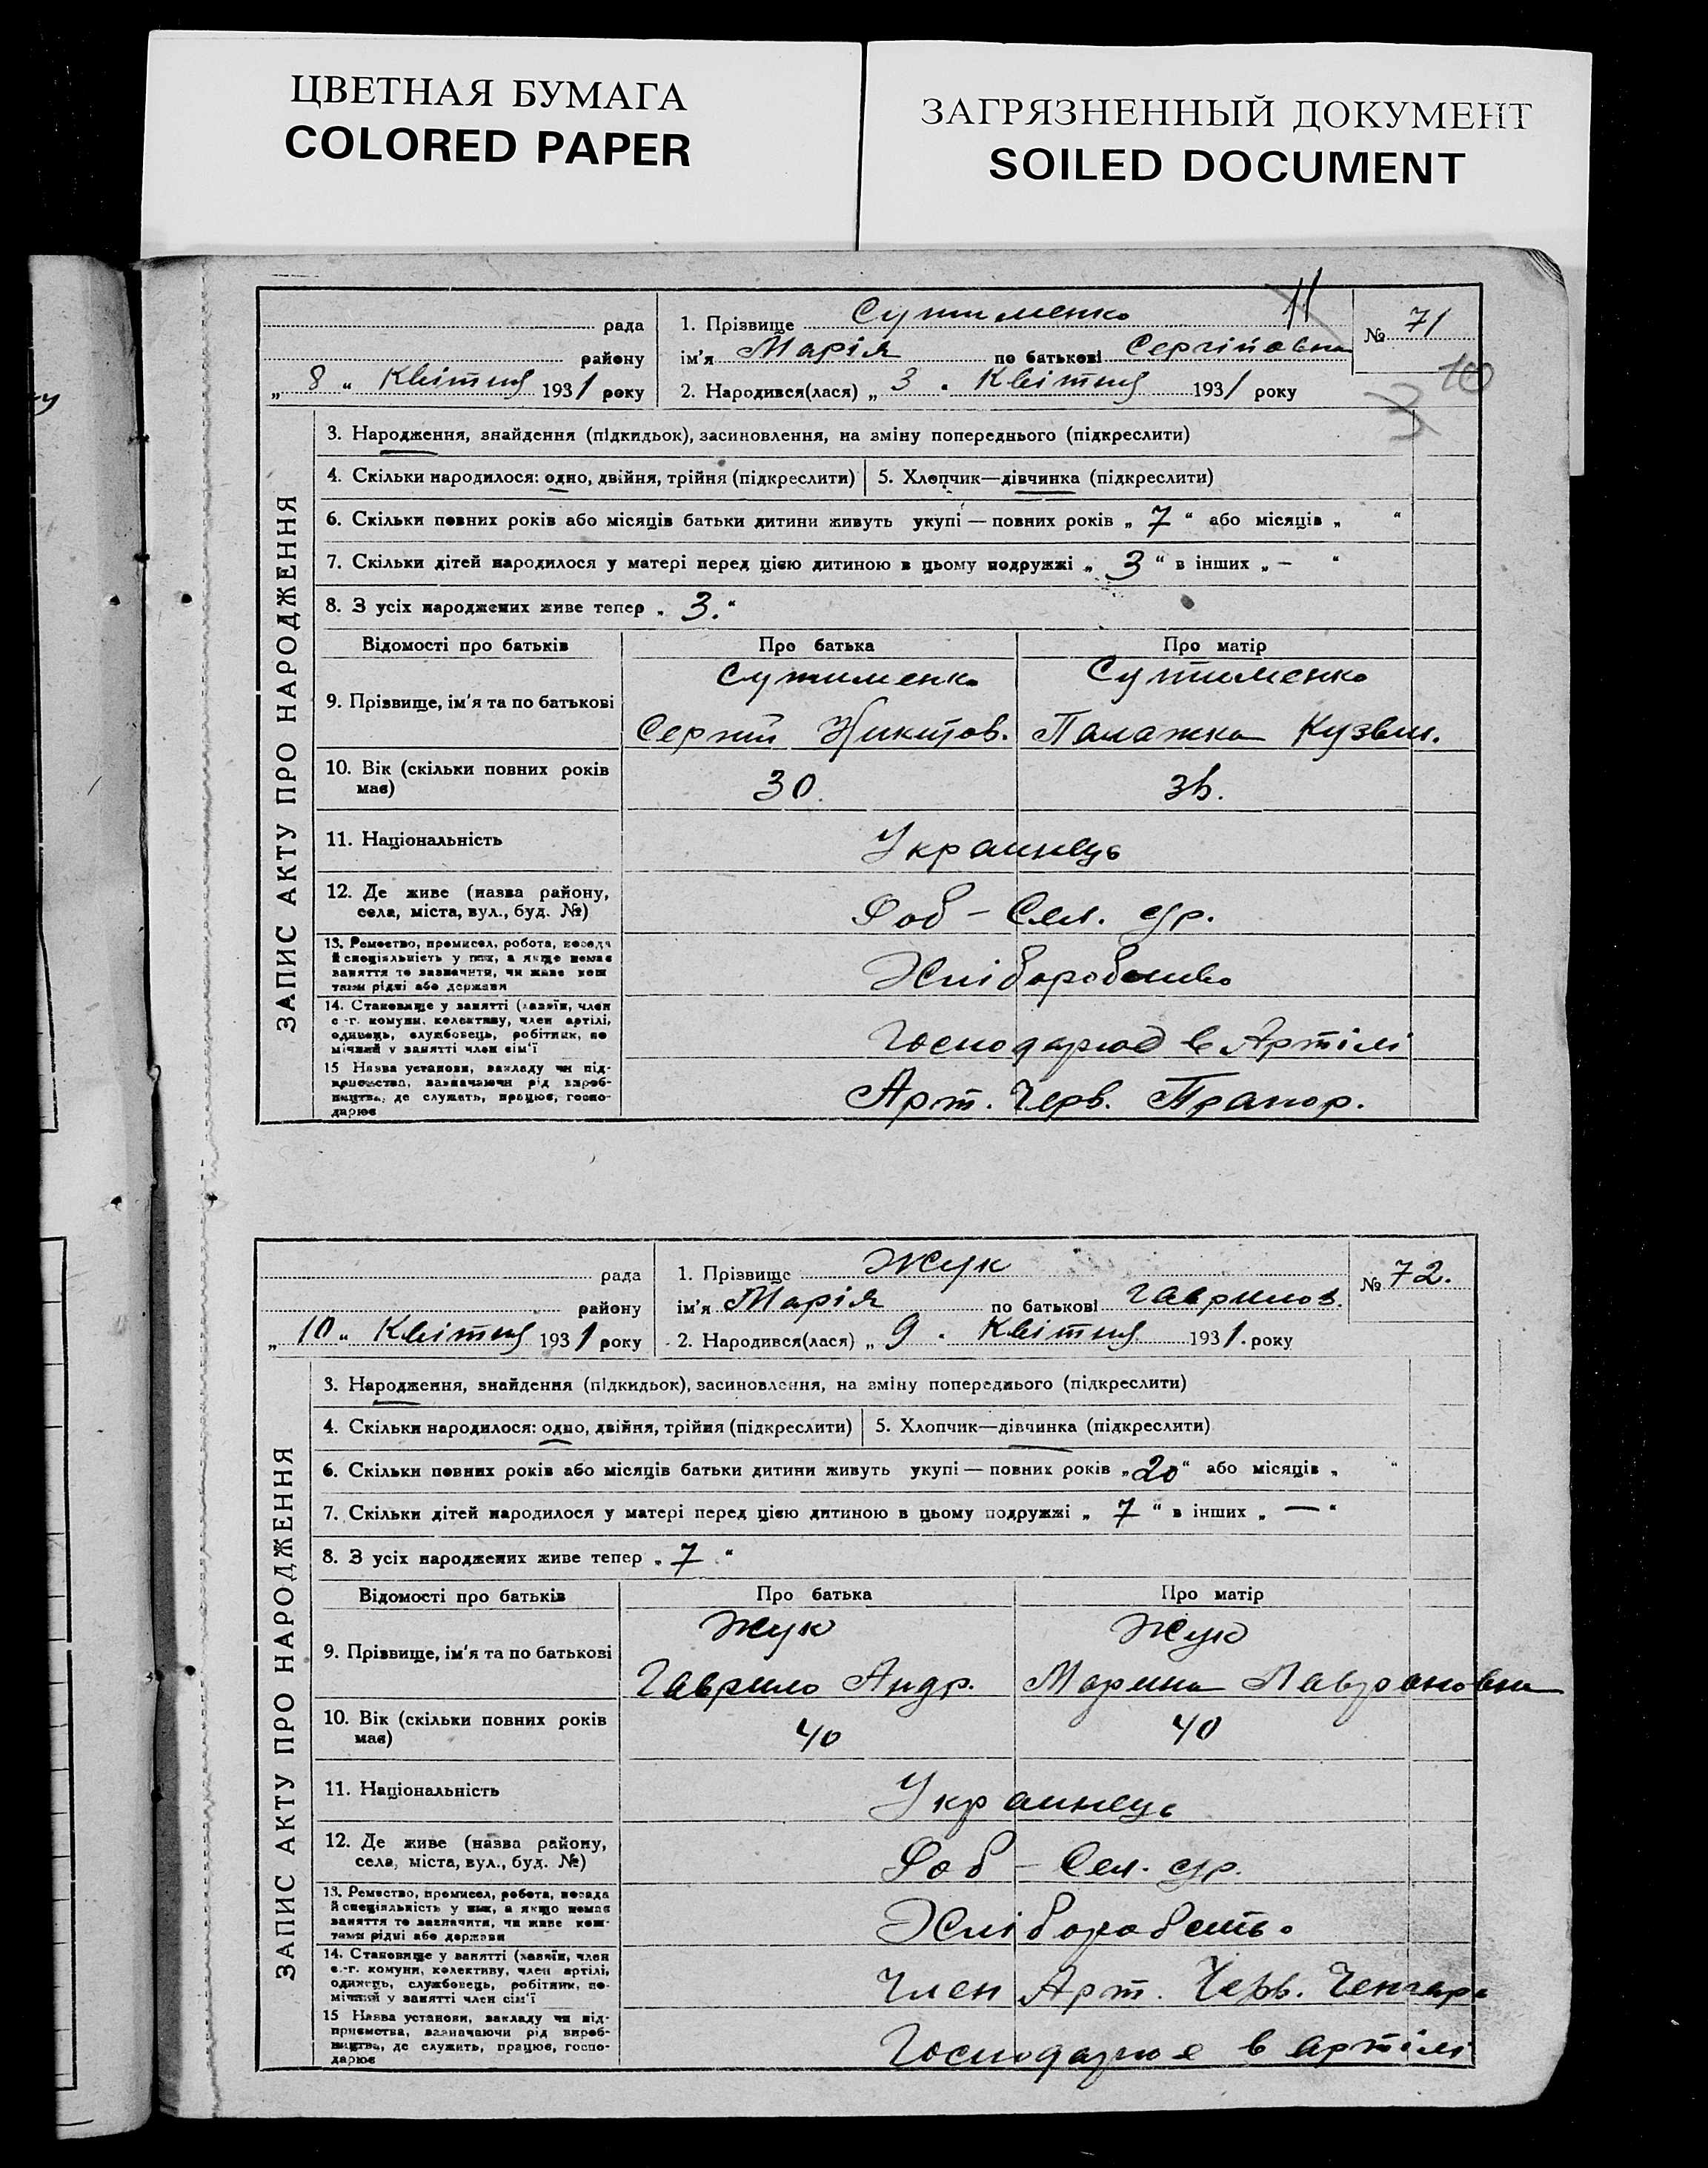 ЦВЕТНАЯ БУМАГА
COLORED PAPER
ЗАГРЯЗНЕННЫЙ ДОКУМЕНТ
SOILED DOCUMENT
11
рада
району
„ 8 „ Квітня 1931 року
1. Прізвище Сутименко
ім'я Марія по батькові Сергійовна
2. Народився(лася) „ 3 „ Квітня 1931 року
№ 71
10
ЗАПИС АКТУ ПРО НАРОДЖЕННЯ
3. Народження, знайдення (підкидьок), засиновлення, на зміну попереднього (підкреслити)
4. Скільки народилося: одно, двійня, трійня (підкреслити) 5. Хлопчик—дівчинка (підкреслити)
6. Скільки повних років або місяців батьки дитини живуть укупі — повних років „ 7 “ або місяців „ “
7. Скільки дітей народилося у матері перед цією дитиною в цьому подружжі „ 3 “ в інших „ – “
8. З усіх народжених живе тепер „ 3. “
Відомості про батьків Про батька Про матір
9. Прізвище, ім'я та по батькові
Сутименко Сутименко
Сергій Никитов. Палажка Кузьм.
10. Вік (скільки повних років має) 30.
11. Національність Украинець
12. Де живе (назва району, села, міста, вул., буд. №) Сел.
13. Ремество, промисел, робота, посада
й спеціяльність у них, а якщо немає
заняття то зазначити, чи живе кош
тами рідні або держави
Хліборобство
14. Становище у занятті (хазяїн, член
с.-г. комуни, колективу, член артілі,
одинець, службовець, робітник, по
мічний у занятті член сім'ї
Господарює в Артілі
15 Назва установи, закладу чи під-
приємства, зазначаючи рід вироб-
ництва, де служить, працює, госпо-
дарює
Арт. Черв. Прапор.
рада
району
„ 10 „ Квітня 1931 року
1. Прізвище Жук
ім'я Марія по батькові Гаврилов.
2. Народився(лася) „ 9 „ Квітня 1931. року
№ 72.
ЗАПИС АКТУ ПРО НАРОДЖЕННЯ
3. Народження, знайдення (підкидьок), засиновлення, на зміну попереднього (підкреслити)
4. Скільки народилося: одно, двійня, трійня (підкреслити) 5. Хлопчик—дівчинка (підкреслити)
6. Скільки повних років або місяців батьки дитини живуть укупі — повних років „ 20 “ або місяців „ “
7. Скільки дітей народилося у матері перед цією дитиною в цьому подружжі „ 7 “ в інших „ — “
8. З усіх народжених живе тепер „ 7 “
Відомості про батьків Про батька Про матір
9. Прізвище, ім'я та по батькові
Жук Жук
Гаврило Андр. Марина
10. Вік (скільки повних років має) 40 40
11. Національність Украинець
12. Де живе (назва району, села, міста, вул., буд. №) Сел.
13. Ремество, промисел, робота, посада
й спеціяльність у них, а якщо немає
заняття то зазначити, чи живе кош-
тами рідні або держави
Хліборобство
14. Становище у занятті (хазяїн, член
с.-г. комуни, колективу, член артілі,
одинець, службовець, робітник, по-
мічний у занятті член сім'ї
Член Арт. Черв.
15 Назва установи, закладу чи під-
приємства, зазначаючи рід вироб-
ництва, де служить, працює, госпо-
дарює
Господарює в артілі